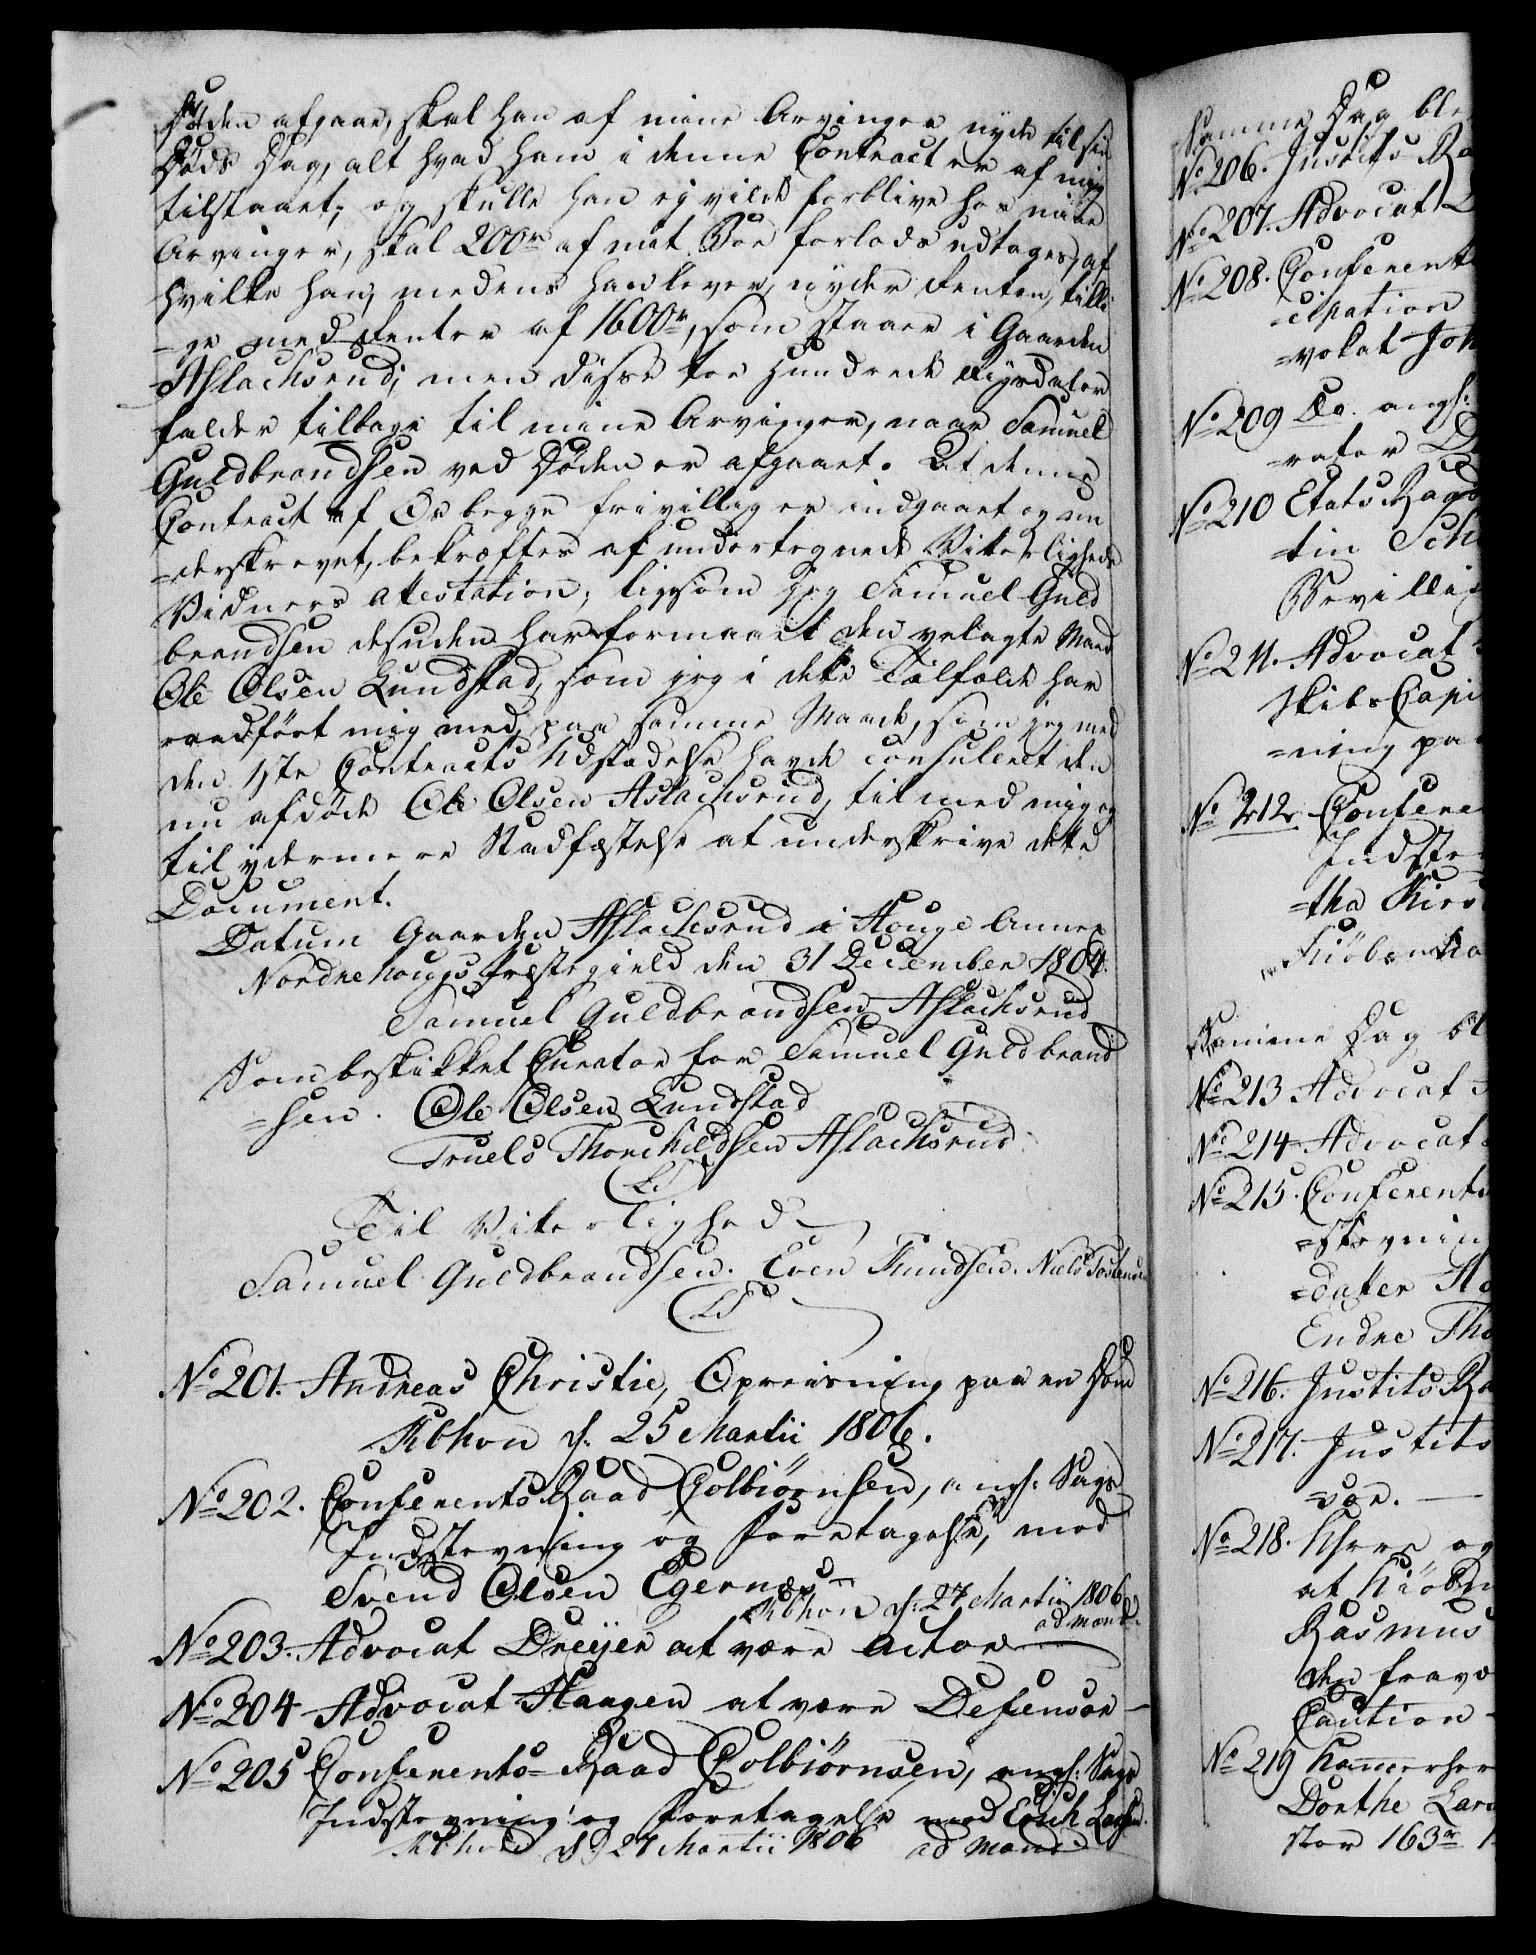 Døden afgaaer, skal han af mine Arvinger nyde til sin
Døds Dag, alt hvad ham i denne Contract er af mig
tilstaaet; og skulle han ej vilde forblive hos mine
Arvinger, skal 200rd af mit Boe forlods udtages, af
hvilke han, medens han lever, nyder Renten, tilli
=ge med Renter af 1600rd, som staaer i Gaarden
Aslachsrud; men disse toe Hundrede Rigsdaler
falder tilbage til mine Arvinger, naar Samuel
Guldbrandsen ved Døden er afgaaet. At denne
Contract af Os begge frivillig er indgaaet og un
=derskrevet, bekræftes af undertegnede Vitterligheds
Vidners Attestation, ligesom jeg Samuel Guld
brandsen desuden har formaaet den velagte Mand
Ole Olsen Lundstad, som jeg i dette Tilfælde har
raadført mig med, paa samme Maade, som jeg med
den 1ste Contracts Udstædelse havde consuleret den
nu afdøde Ole Olsen Aslachsrud, til med mig og
til ydermere Stadfæstelse at underskrive dette
Document.
Datum Gaarden Aslachsrud i Houge Annex
Nordrehougs Præstegield den 31 December 1804.
Samuel Guldbrandsen Aslachsrud
Som beskikket Curator for Samuel Guldbrand
=sen. Ole Olsen Lundstad
Truels Thorchildsen Aslachsrud.
(LS)
Til Vitterlighed
Samuel Guldbrandsen. Even Knudsen. Niels Tostensen
(LS)
No 201. Andreas Christie, Opreisning paa en Dom
Kbhvn d. 25 Martii 1806.
No 202. Conferents Raad Colbiørnsen, angl. Sags
Indstevning og Foretagelse, mod
Svend Olsen Egernæs
Kbhvn d. 27 Martii 1806
ad mand.
No 203. Advocat Dreyer at være Actor
No 204 Advocat Haagen at være Defensor
No 205 Conferents=Raad Colbiørnsen, angl. Sags
Indstevning og Foretagelse mod Erich Larsen.
Kbhvn d. 27 Martii 1806 ad mand
Samme Dag ble
No 206. Justits Ra
No 207. Advocat
No 208. Conferents
=cipation
=vokat Joh
No 209 Do. angl.
=rator
No 210 Etats Raad
=tin Sch
Bevilli
No 211. Advocat
Skibs Capi
=ning paa
No 212. Confere
Indste
=tha Kirs
Kiøbenha
Samme Dag bl
No 213 Advocat
No 214 Advocat
No 215. Conferents
=stevnin
=datter
Endre Tho
No 216. Justits Ra
No 217. Justits
=vor.
No 218. Khrr og
at Kiøbm
Rasmus
den fravæ
Caution
No 219 Kammerher
Dorthe Lars
stor 163rd